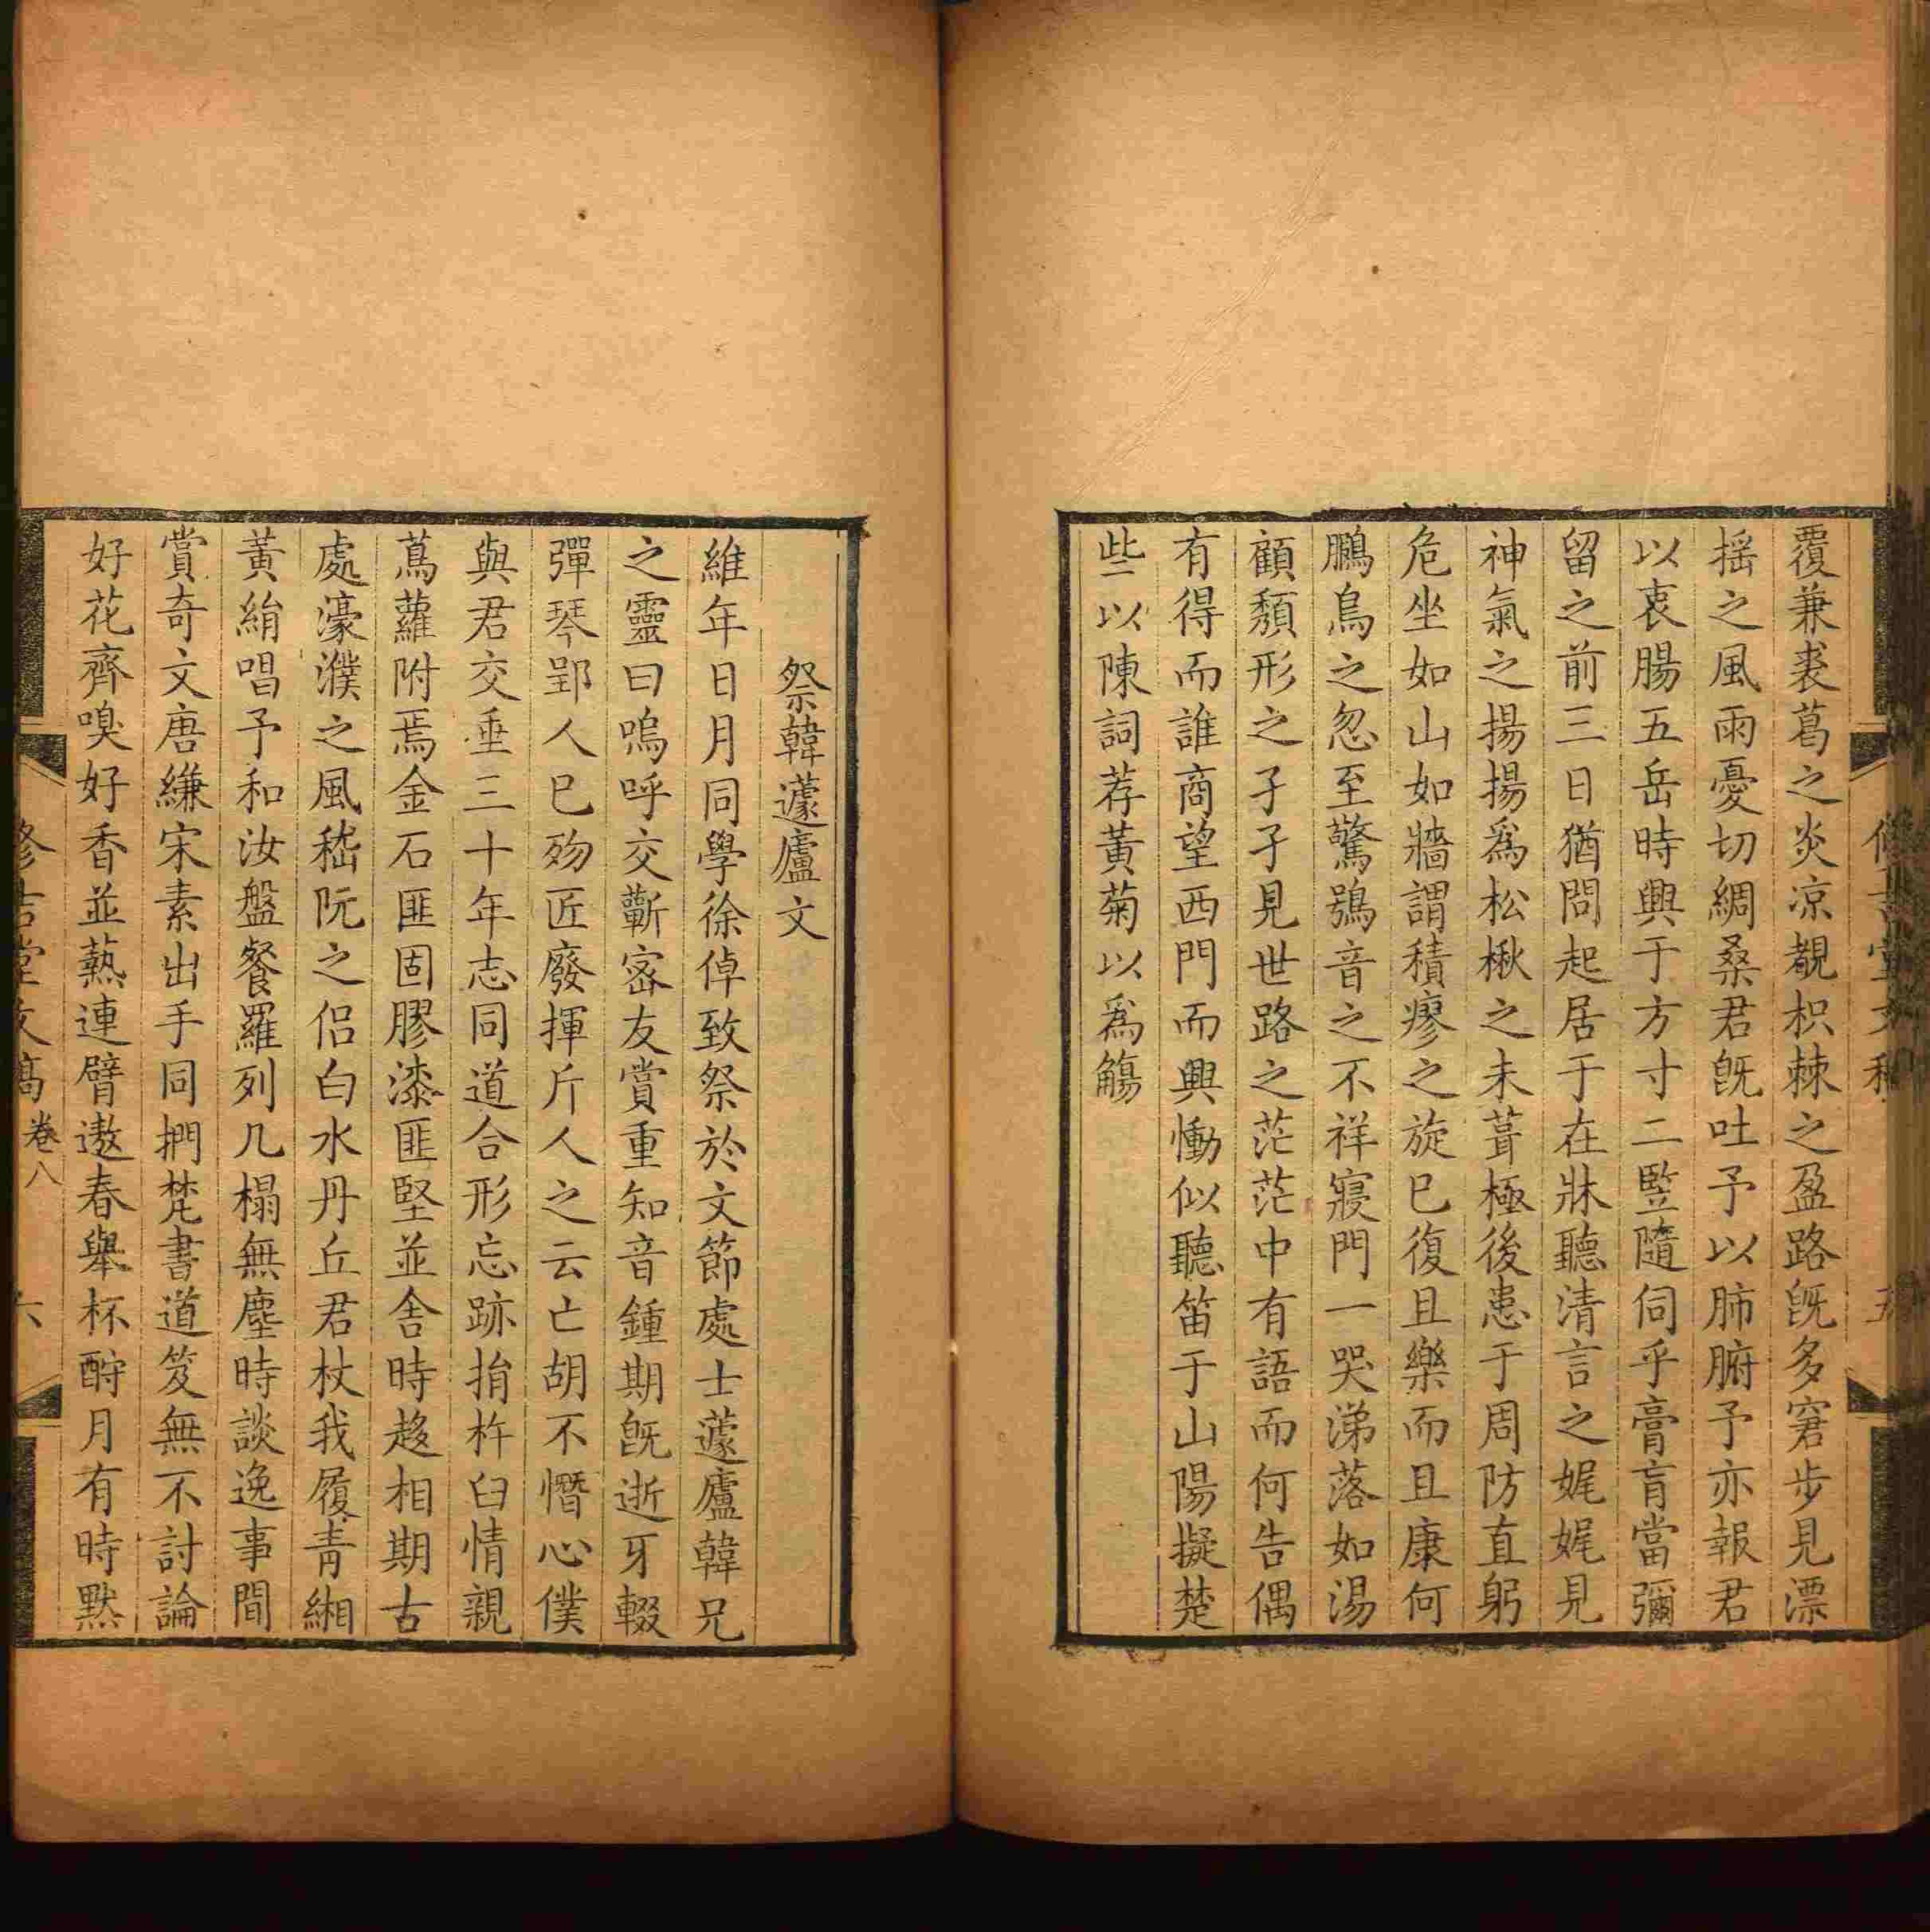 覆兼裘葛之炎凉覩枳棘之盈路旣多窘步見漂
揺之風雨憂切綢桑君旣吐予以肺腑予亦報君
以衷腸五岳時興于方寸二豎隨伺乎膏肓當彌
留之前三日猶問起居于在牀聽清言之娓娓見
神氣之揚揚爲松楸之未葺極後患于周防直躬
危坐如山如牆謂積瘳之旋已復且樂而且康何
鵩鳥之忽至驚鴞音之不祥寢門一哭涕落如湯
顧頽形之孑孑見世路之茫茫中有語而何告偶
有得而誰商望西門而興慟似聽笛于山陽擬楚
些以陳詞荐黃菊以爲觴
祭韓蘧廬文
維年日月同學徐倬致祭於文節處士蘧廬韓兄
之靈曰嗚呼交蘄密友賞重知音鍾期旣逝牙輟
彈琴郢人已歾匠廢揮斤人之云亡胡不憯心僕
與君交垂三十年志同道合形忘跡捐杵臼情親
蔦蘿附焉金石匪固膠漆匪堅並舍時趍相期古
處濠濮之風嵇阮之侣白水丹丘君杖我履青緗
黃絹唱予和汝盤餐羅列几榻無塵時談逸事間
賞奇文唐縑宋素出手同捫梵書道笈無不討論
好花齊嗅好香並爇連臂遨春舉杯酹月有時黙
修吉堂文稿 卷八 六